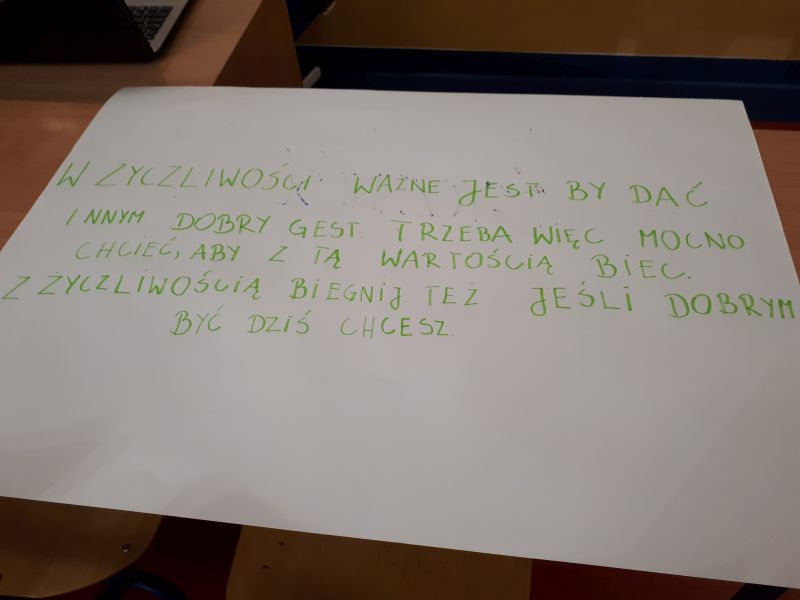 W ZYCZLIWOŚCI WAŻNE JEST BY DAĆ
INNYM DOBRY GEST. TRZEBA WIĘC MOCNO
CHCIEĆ, ABY Z TĄ WARTOŚCIĄ BIEC.
Z ŻYCZLIWOŚCIĄ BIEGNIJ TEŻ JEŚLI DOBRYM
BYĆ DZIŚ CHCESZ.